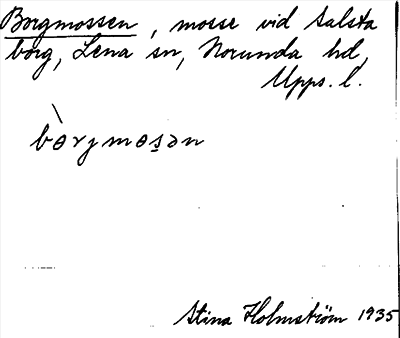 Borgmossen, mosse vid Salsta
borg, Lena sn, Norunda hd,
Upps. l.
bòrjmosən
Stina Holmström 1935